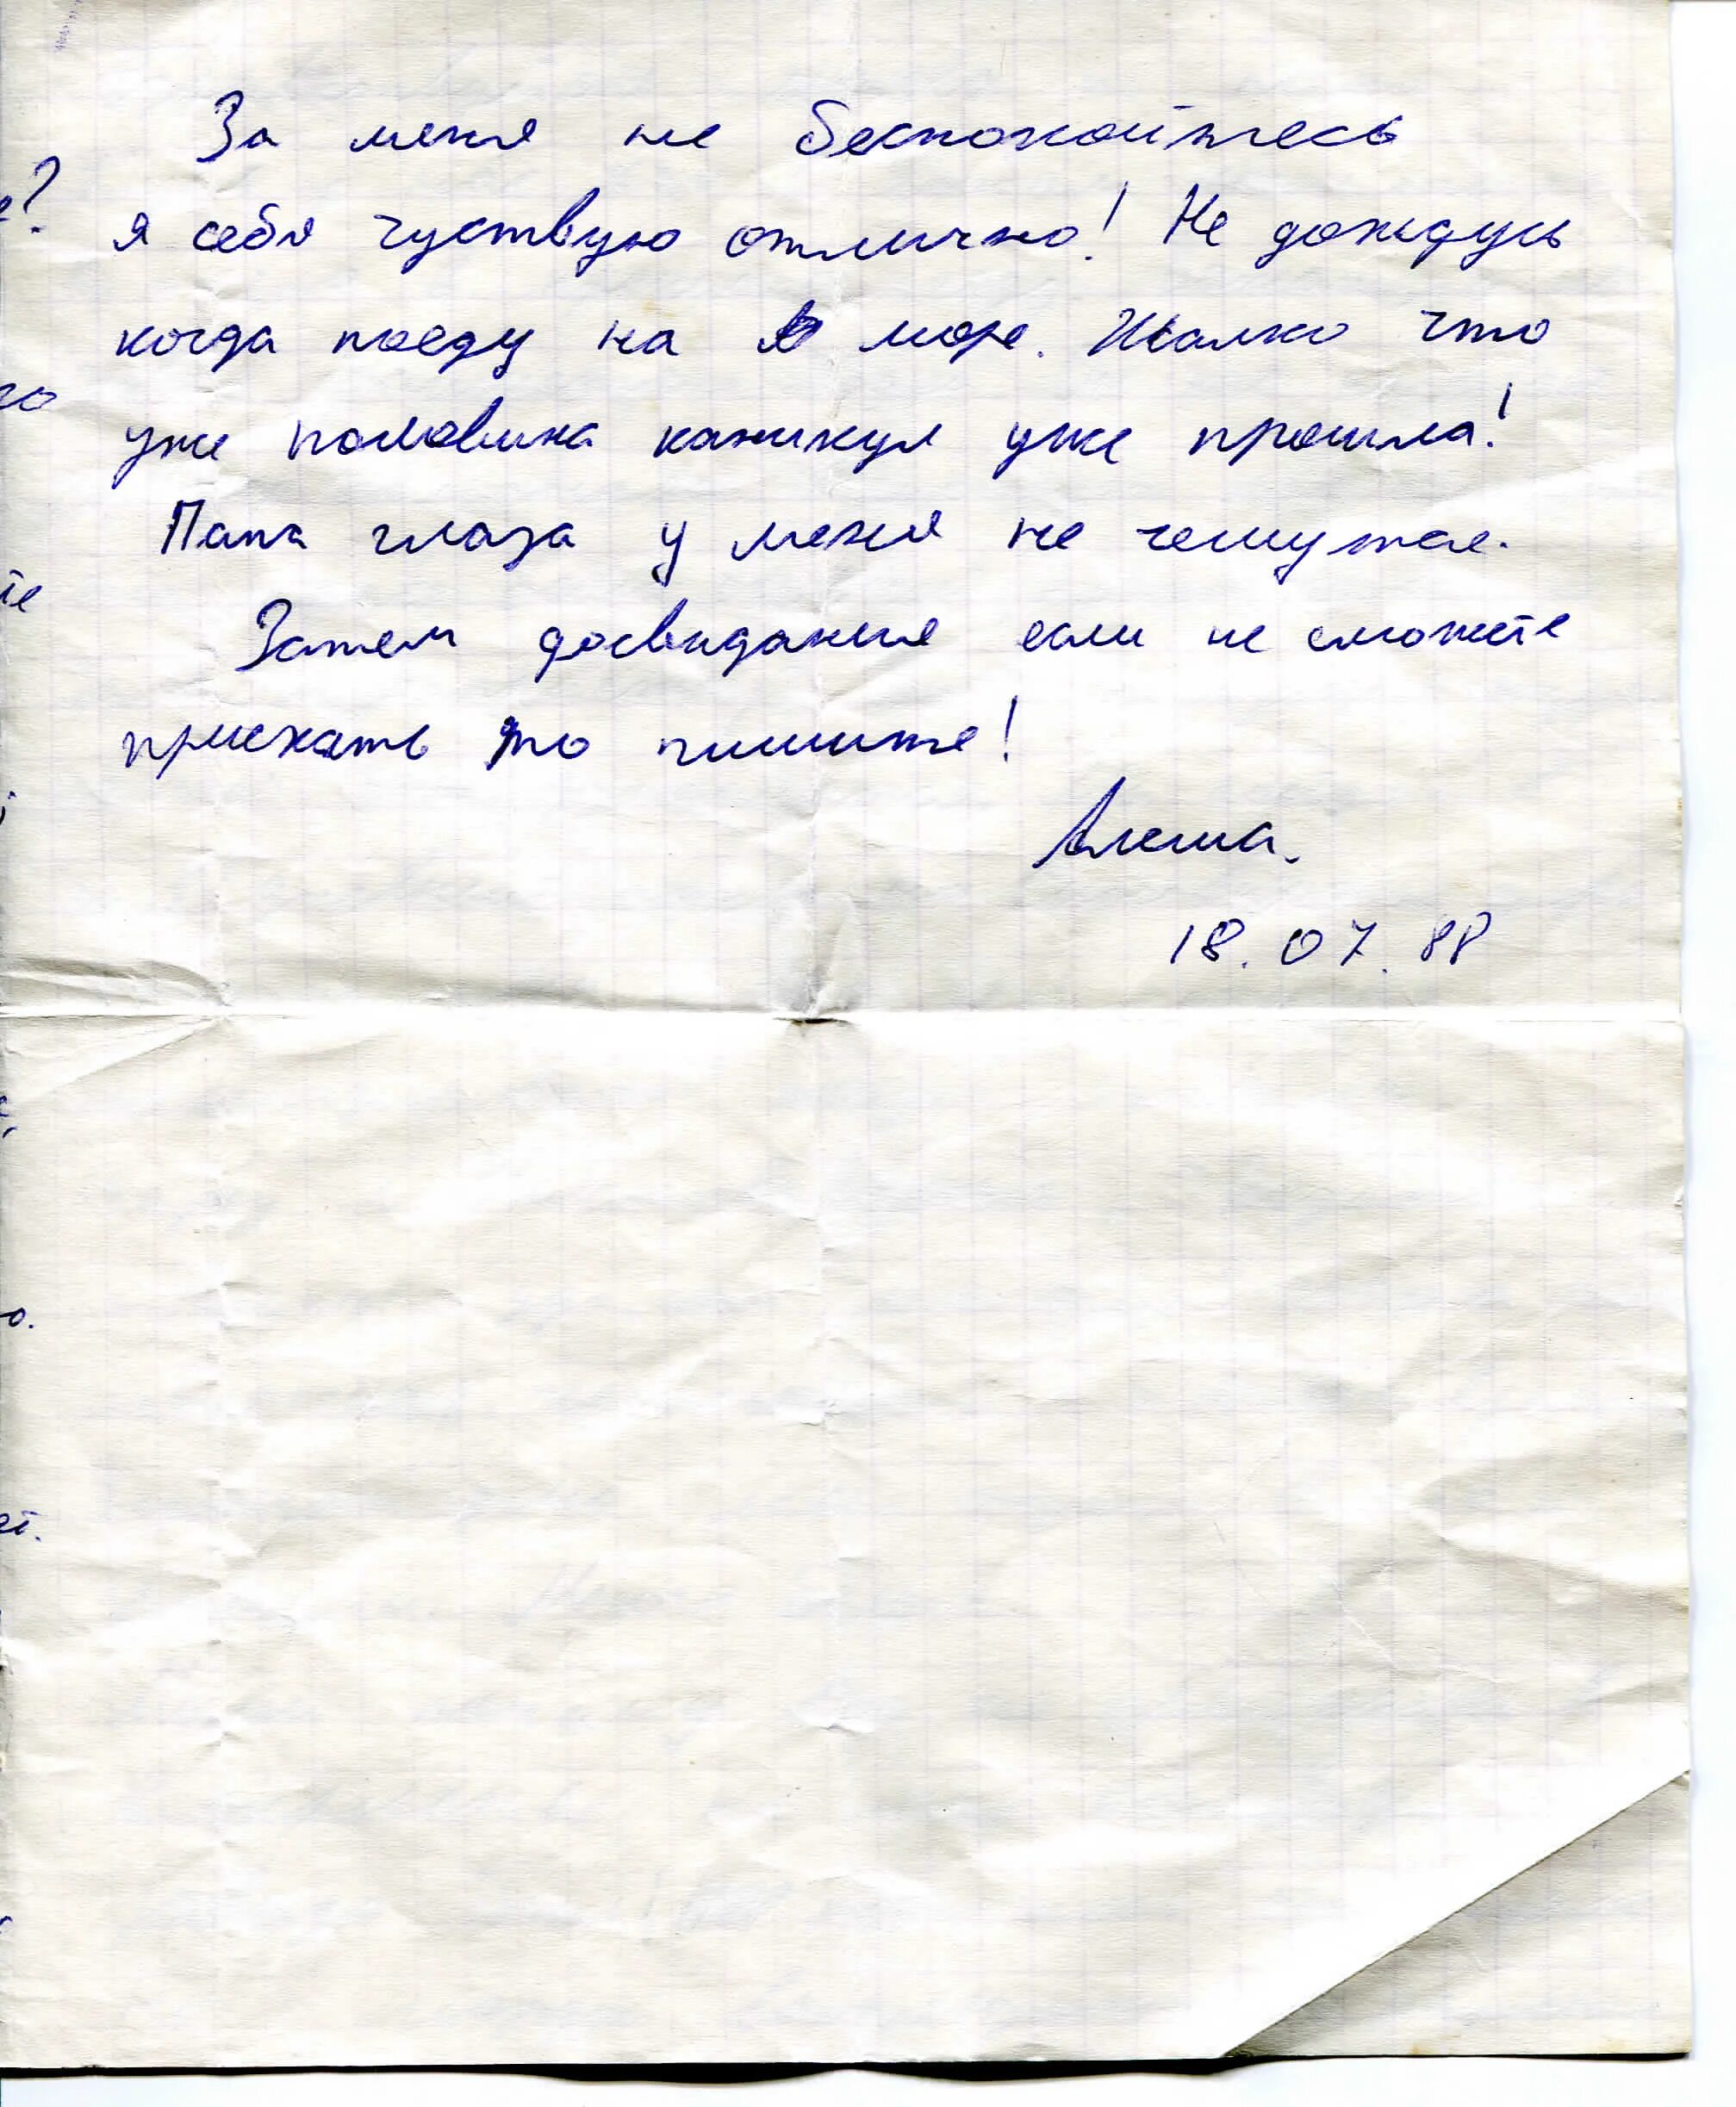 За меня не беспокойтесь
я себя чуствую отлично! Не дождусь
когда поеду на море. Жалко что
уже половина каникул уже прошла!
Папа глаза у меня не чешутся.
Затем досвидания если не сможете
приехать то пишите!
Алеша.
18.07.88